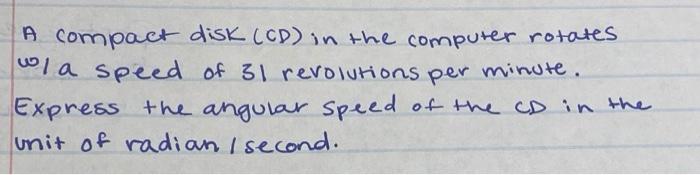 A compact disk (CD) in the computer rotates
w/ a speed of 31 revolutions per minute.
Express the angular speed of the CD in the
unit of radian / second.